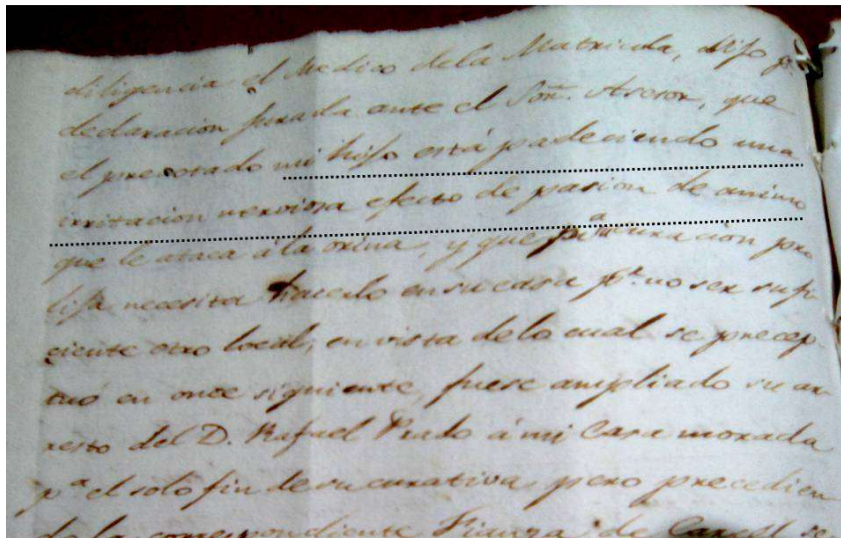 diligencia el Medico dela Matricula, dijo pr.
declaracion jurada ante el Sor. Asesor, que
el precitado mi hijo está padeciendo una
irritacion nerviosa efecto de pasion de animo
que le ataca á la orina, y que pa. su curacion pro
lija necesita hacerlo en su casa pr. no ser sufi
ciente otro local; en vista delo cual se precep
tuó en once siguiente, fuese ampliado su ar
resto del D. Rafael Prado á mi Casa morada
pa el solo fin de su curativa, pero precedien
do la correspondiente Fianza de Carcel se